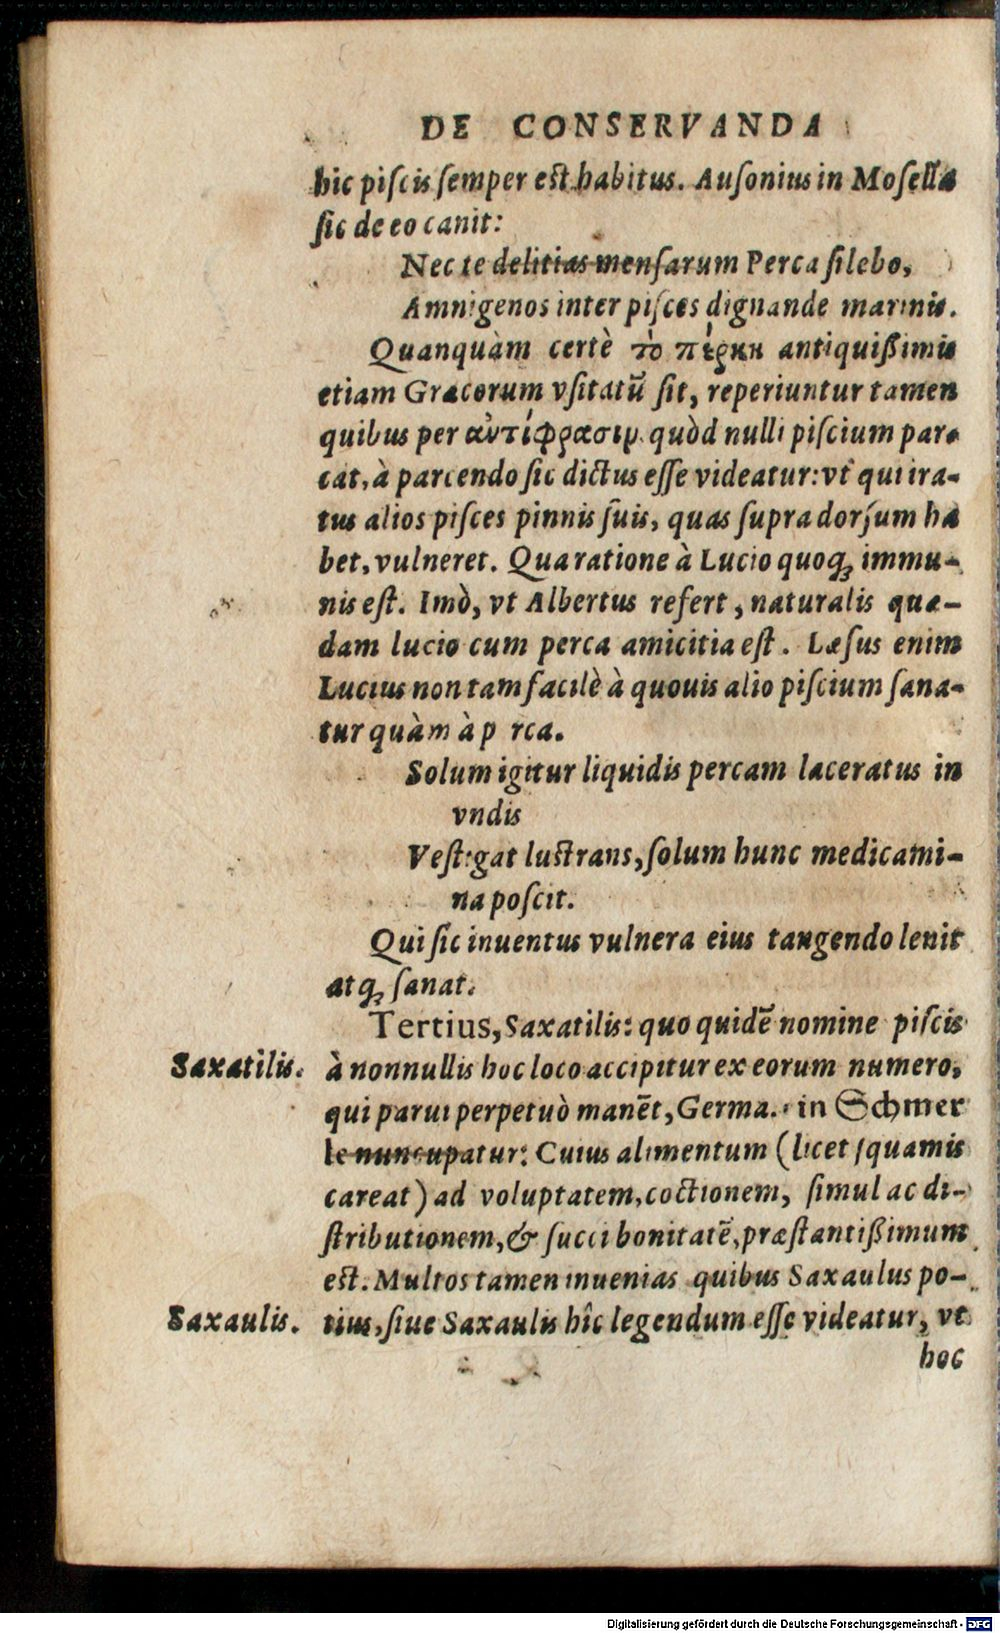 DE CONSERVANDA
hic piſcis ſemper est habitus. Auſonius in Moſella
ſic de eo canit:
Nec te delitias menſarum Perca ſilebo,
Amnigenos inter piſces dignande marinis.
Quanquàm certè τὸ πέρκη antiquißimis
etiam Græcorum vſitatū ſit, reperiuntur tamen
quibus per ἀντίφρασιν quòd nulli piſcium par-
cat, à parcendo ſic dictus eſſe videatur: vt qui ira-
tus alios piſces pinnis ſuis, quas ſupra dorſum ha
bet, vulneret. Qua ratione à Lucio quoq; immu-
nis eſt. Imò, vt Albertus refert, naturalis quæ-
dam lucio cum perca amicitia eſt. Læſus enim
Lucius non tam facilè à quouis alio piſcium ſana-
tur quàm à p rca.
Solum igitur liquidis percam laceratus in
vndis
Veſtigat luſtrans, ſolum hunc medicami-
na poſcit.
Qui ſic inuentus vulnera eius tangendo lenit
atq; ſanat.
Tertius, Saxatilis: quo quidē nomine piſcis
Saxatilis. à nonnullis hoc loco accipitur ex eorum numero,
qui parui perpetuò manēt, Germa. in Schmer
le nuncupatur: Cuius alimentum (licet ſquamis
careat) ad voluptatem, coctionem, ſimul ac di-
ſtributionem, & ſucci bonitatē, præſtantißimum
est. Multos tamen inuenias quibus Saxaulus po-
Saxaulis. tius, ſiue Saxaulis hîc legendum eſſe videatur, vt
hoc
Digitalisierung gefördert durch die Deutsche Forschungsgemeinschaft - DFG